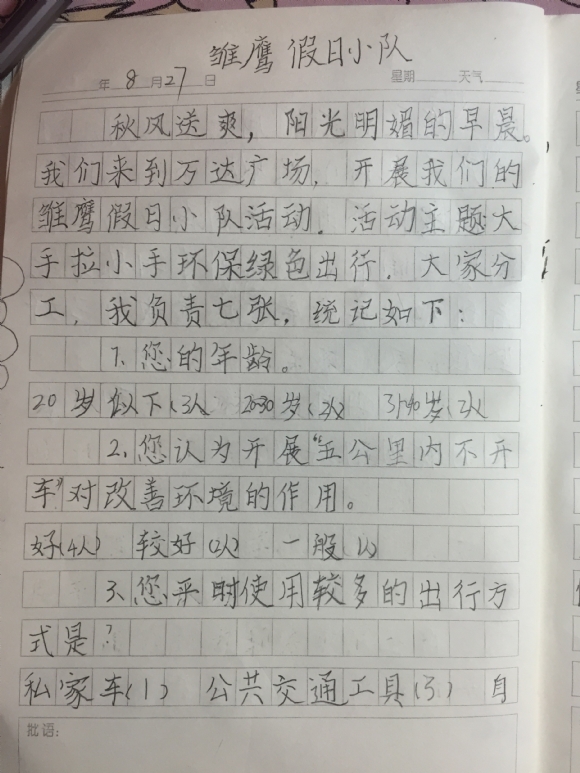 雏鹰假日小队
年 8 月 27 日 星期 天气
秋风送爽，阳光明媚的早晨。
我们来到万达广场，开展我们的
雏鹰假日小队活动．活动主题大
手拉小手环保绿色出行．大家分
工，我负责七张，统记如下：
1．您的年龄。
20岁似下(3人 20-30岁(2人) 31-40岁(2人
2．您认为开展“五公里内不开
车”对改善环境的作用。
好(4人) 较好(2人) 一般(1人)
3．您平时使用较多的出行方
式是？
私家车(1) 公共交通工具(3) 自
批语：